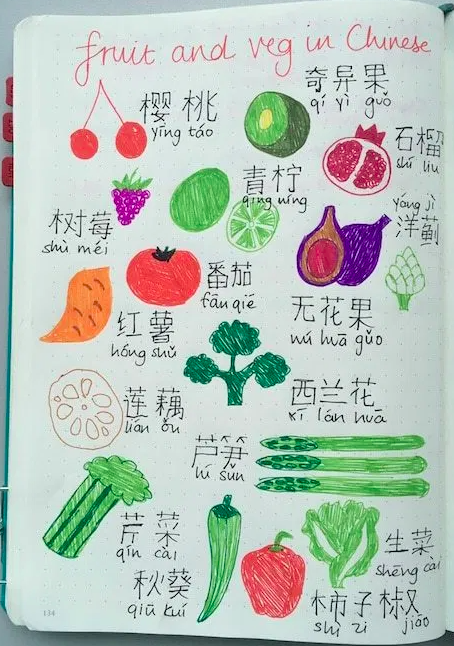 fruit and veg in Chinese
樱桃
yīng táo
奇异果
qí yì guǒ
石榴
shí liu
青柠
qīng níng
树莓
shù méi
yáng jì
洋蓟
番茄
fān qié
无花果
wú huā guǒ
红薯
hóng shǔ
莲藕
lián ǒu
西兰花
xī lán huā
芦笋
lú sǔn
芹菜
qín cài
生菜
shēng cài
秋葵
qiū kuí
柿子椒
shì zi jiāo
134